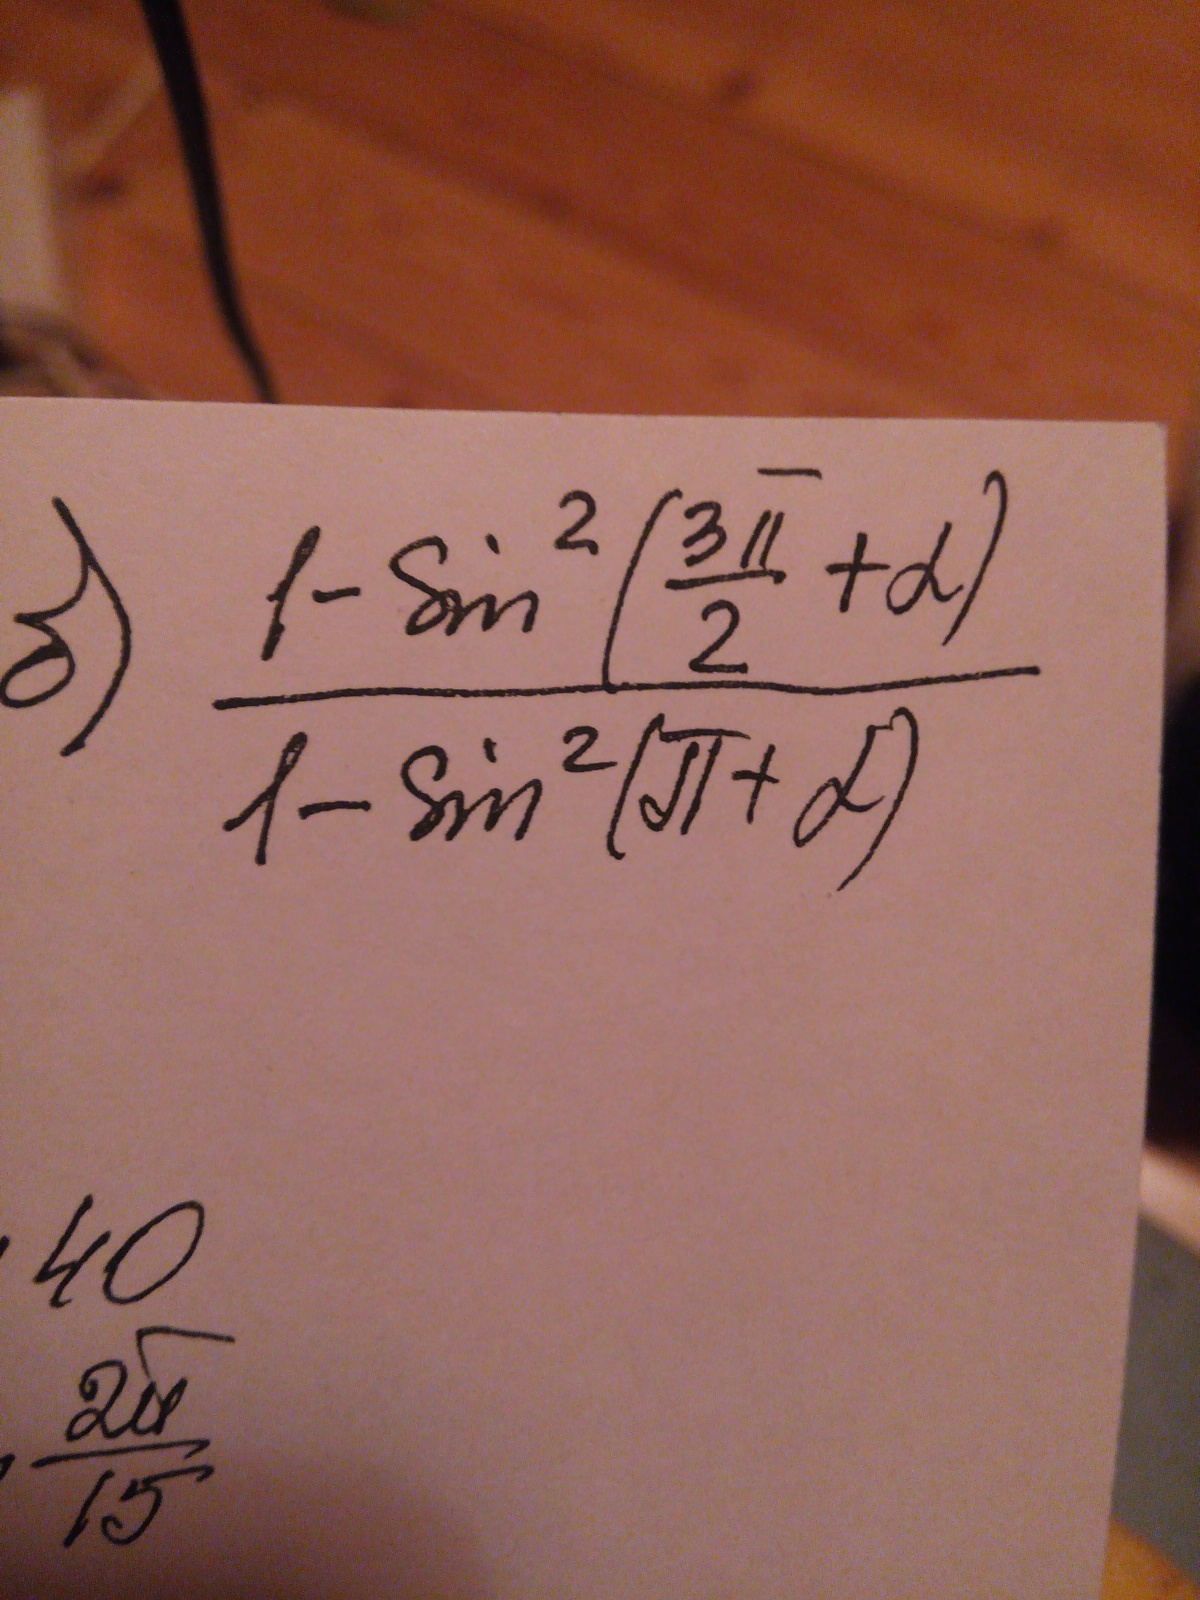 б) (1 - Sin²(3π/2 + α)) / (1 - Sin²(π + α))
40
2π/15